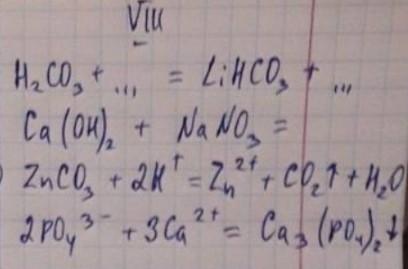 VIII
H₂CO₃ + ... = LiHCO₃ + ...
Ca(OH)₂ + NaNO₃ =
) ZnCO₃ + 2H⁺ = Zn²⁺ + CO₂↑ + H₂O
2PO₄³⁻ + 3Ca²⁺ = Ca₃(PO₄)₂↓